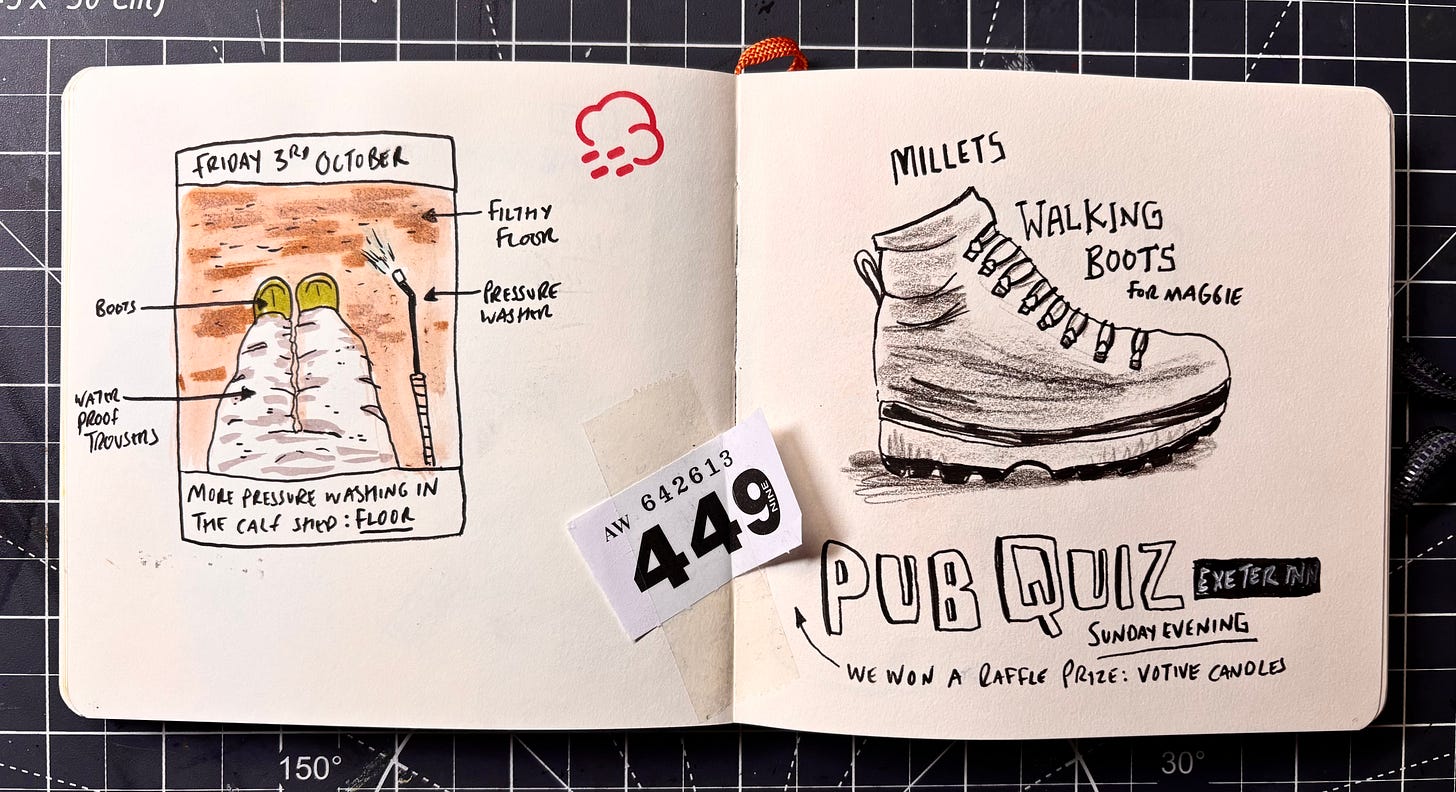 FRIDAY 3RD OCTOBER
FILTHY
FLOOR
BOOTS
PRESSURE
WASHER
WATER
PROOF
TROUSERS
MORE PRESSURE WASHING IN
THE CALF SHED: FLOOR
AW 642613
449
NINE
MILLETS
WALKING
BOOTS
FOR MAGGIE
PUB QUIZ
EXETER INN
SUNDAY EVENING
WE WON A RAFFLE PRIZE: VOTIVE CANDLES
150°
30°